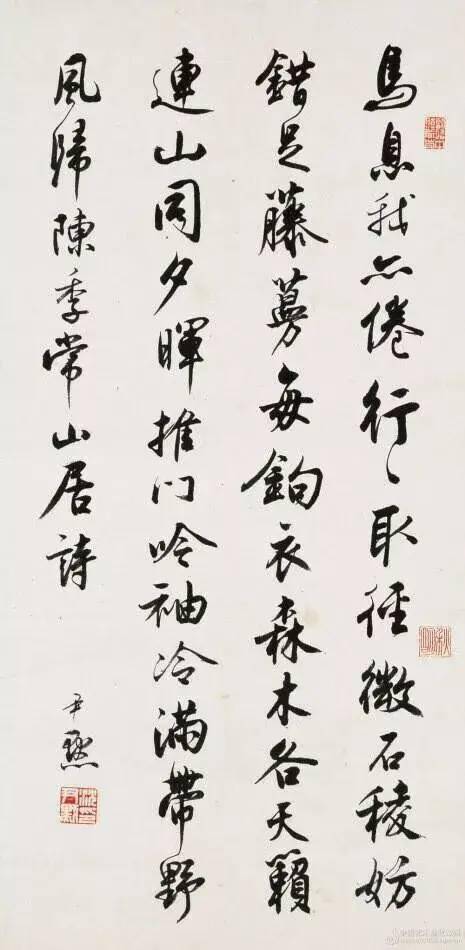 馬息我亦倦行〻取徑微石稜妨
錯足藤蔓每鉤衣森木各天籟
連山同夕暉推门吟袖冷滿帶野
風歸陳季常山居詩
尹默